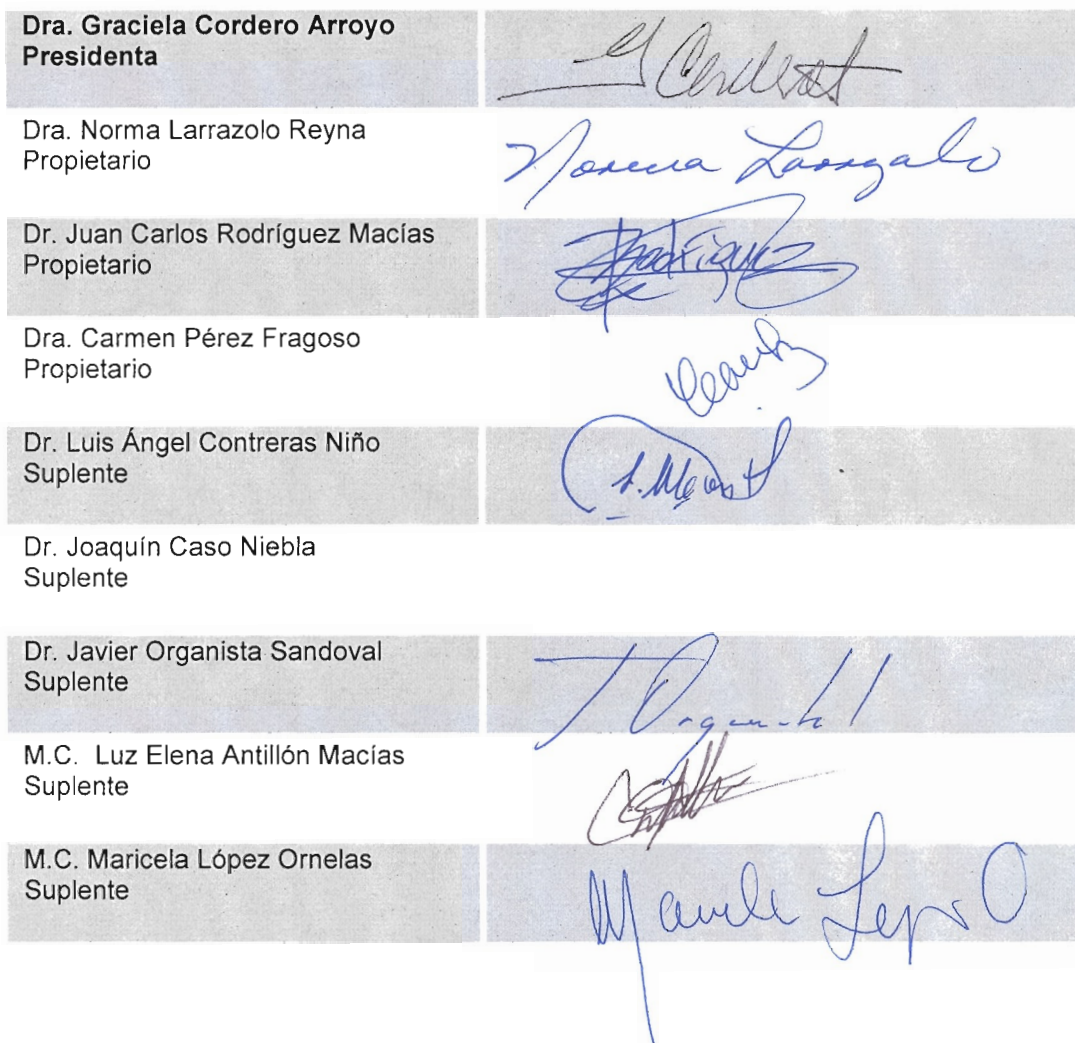 Dra. Graciela Cordero Arroyo
Presidenta
Dra. Norma Larrazolo Reyna
Propietario
Norma Larrazolo
Dr. Juan Carlos Rodríguez Macías
Propietario
Rodríguez
Dra. Carmen Pérez Fragoso
Propietario
Dr. Luis Ángel Contreras Niño
Suplente
Dr. Joaquín Caso Niebla
Suplente
Dr. Javier Organista Sandoval
Suplente
M.C. Luz Elena Antillón Macías
Suplente
M.C. Maricela López Ornelas
Suplente